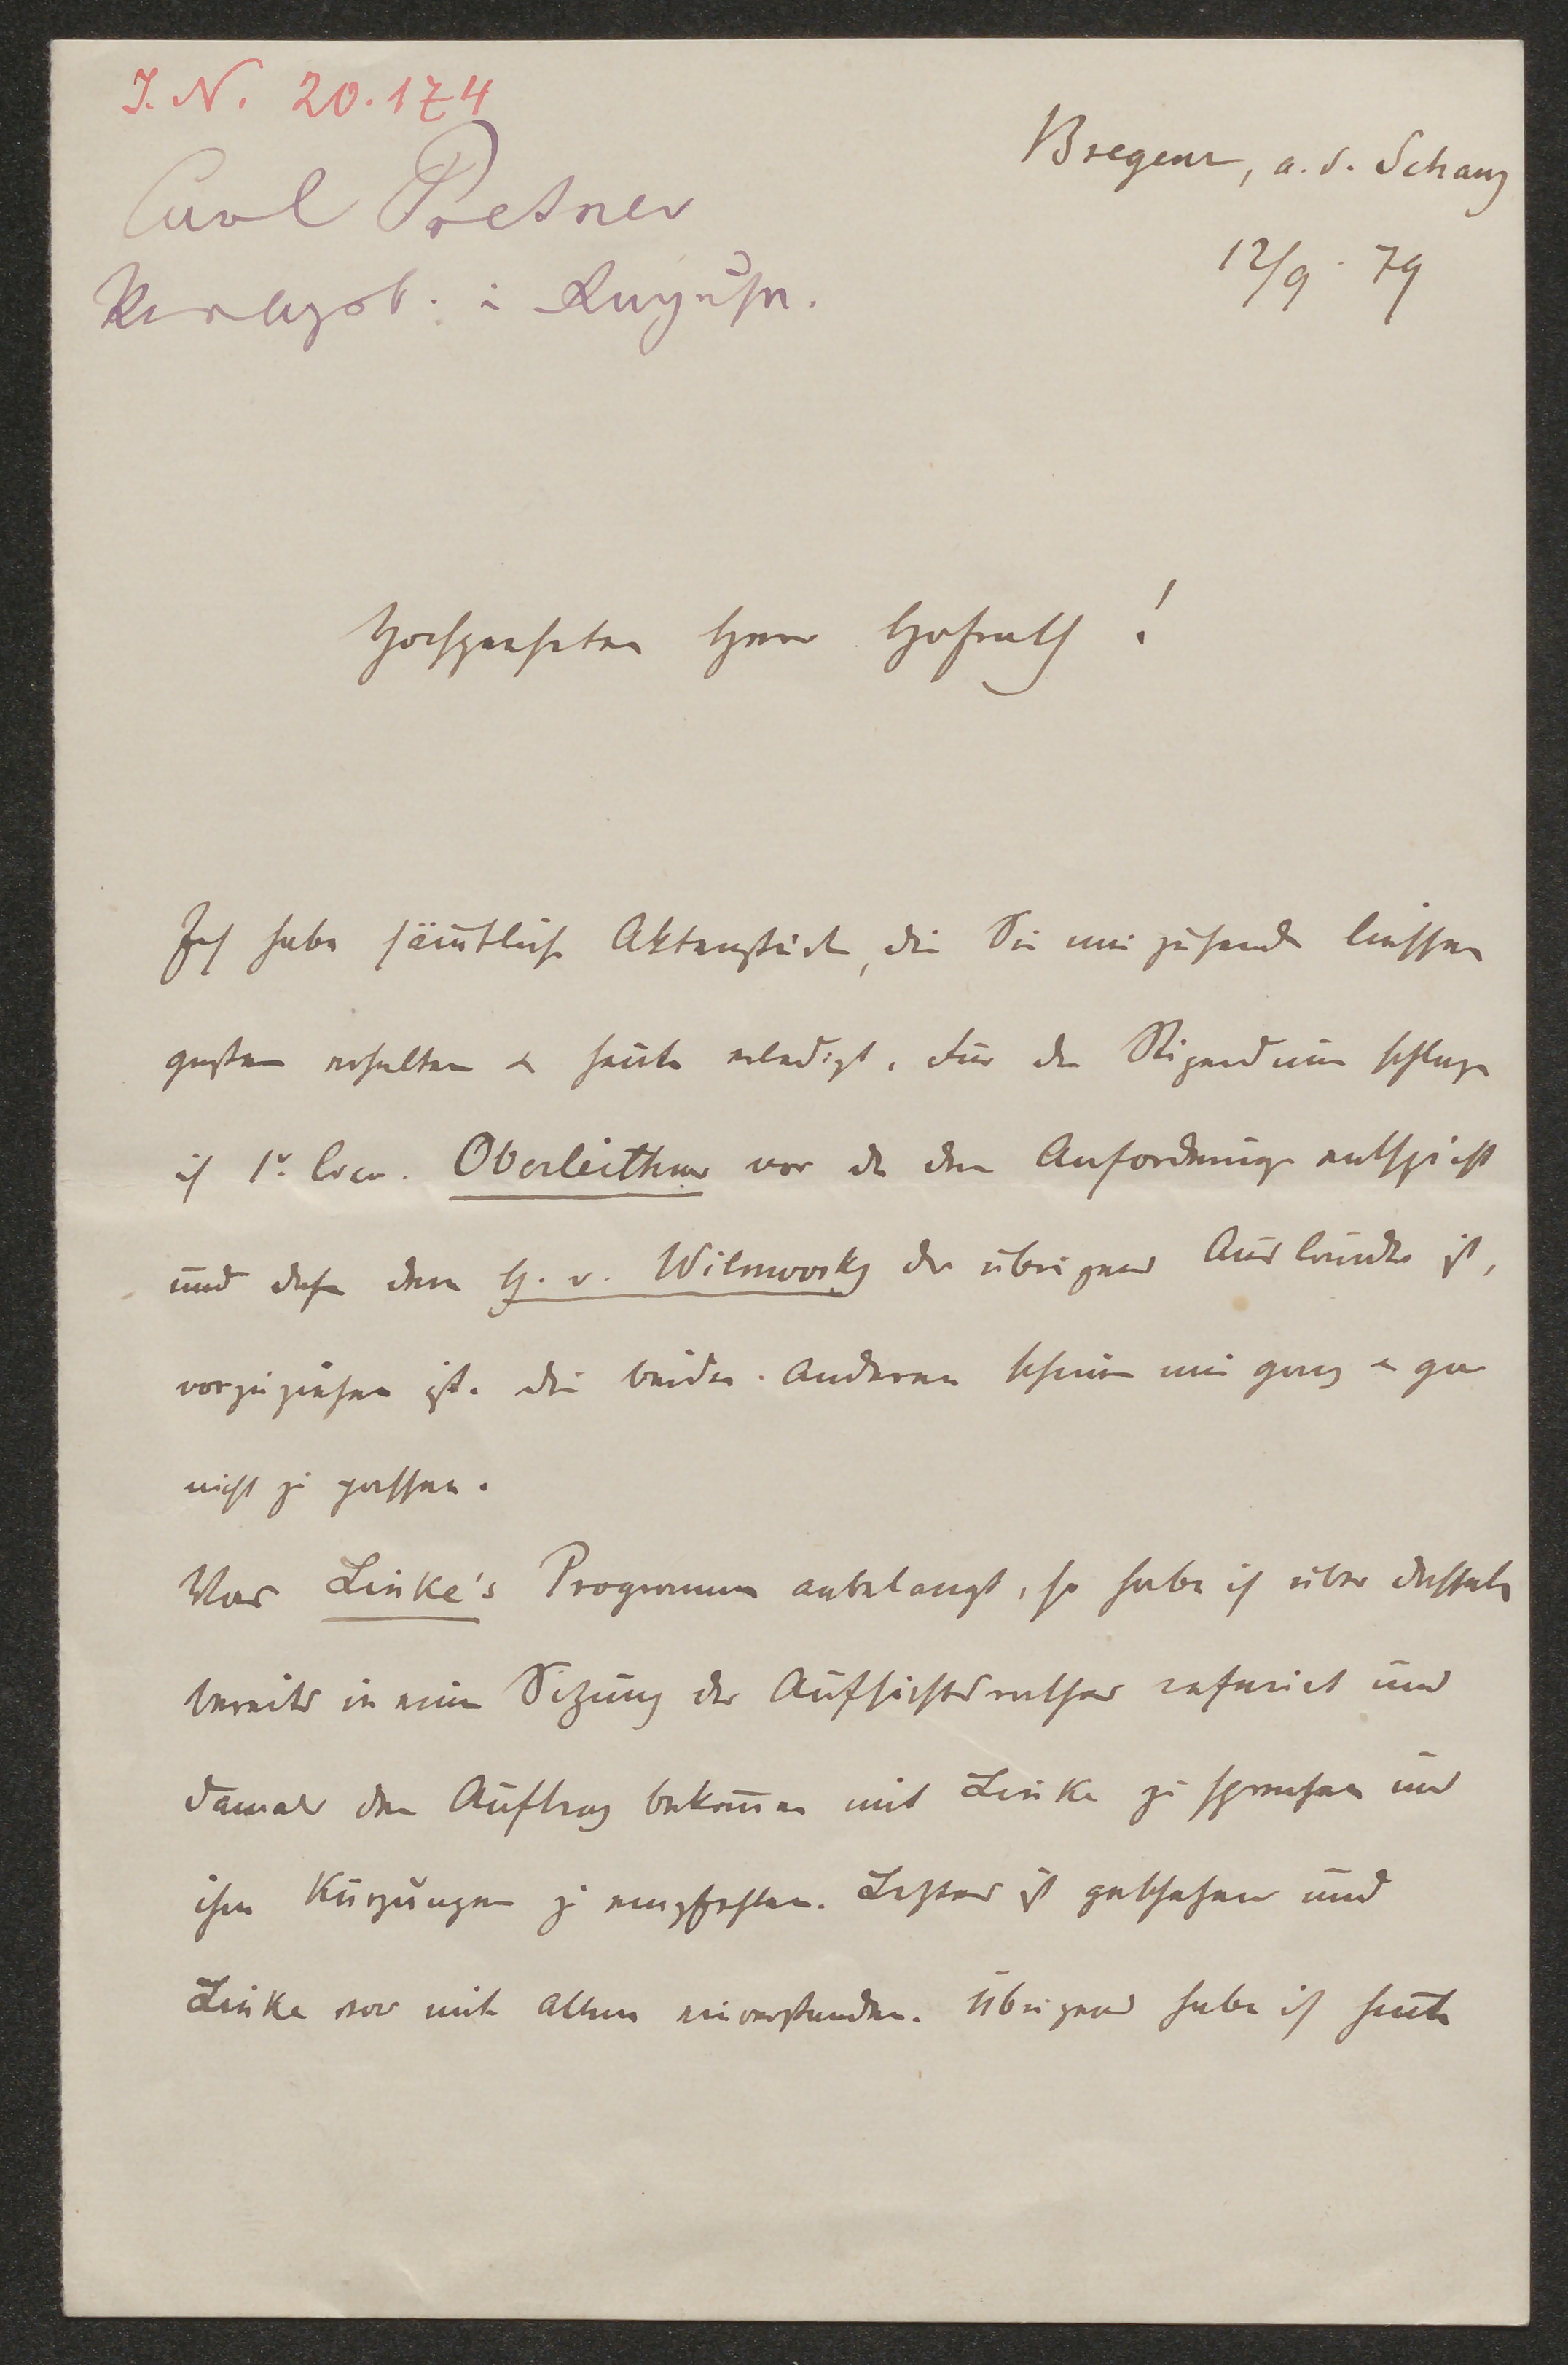 I. N. 20.174
Carl Pretner
Bregenz, a. d. Schanz
12/9. 79
Hochgeehrter Herr Hofrath!
Ich habe sämtliche Aktenstücke, die Sie mir zusenden liessen
gestern erhalten & heute erledigt. Für das Stipendium schlage
ich loco. Oberleithner vor da der Anforderung entspricht
und daher dem H. v. Wilmovsky der übrigens Ausländer ist,
vorzuziehen ist. Die beiden Anderen scheinen mir ganz & gar
nicht zu passen.
Was Linke's Programm anbelangt, so habe ich über dasselbe
bereits in einer Sitzung des Aufsichtsrathes referiert und
damals den Auftrag bekommen mit Linke zu sprechen und
ihm Kürzungen zu empfehlen. Letzteres ist geschehen und
Linke war mit Allem einverstanden. Übrigens habe ich heute